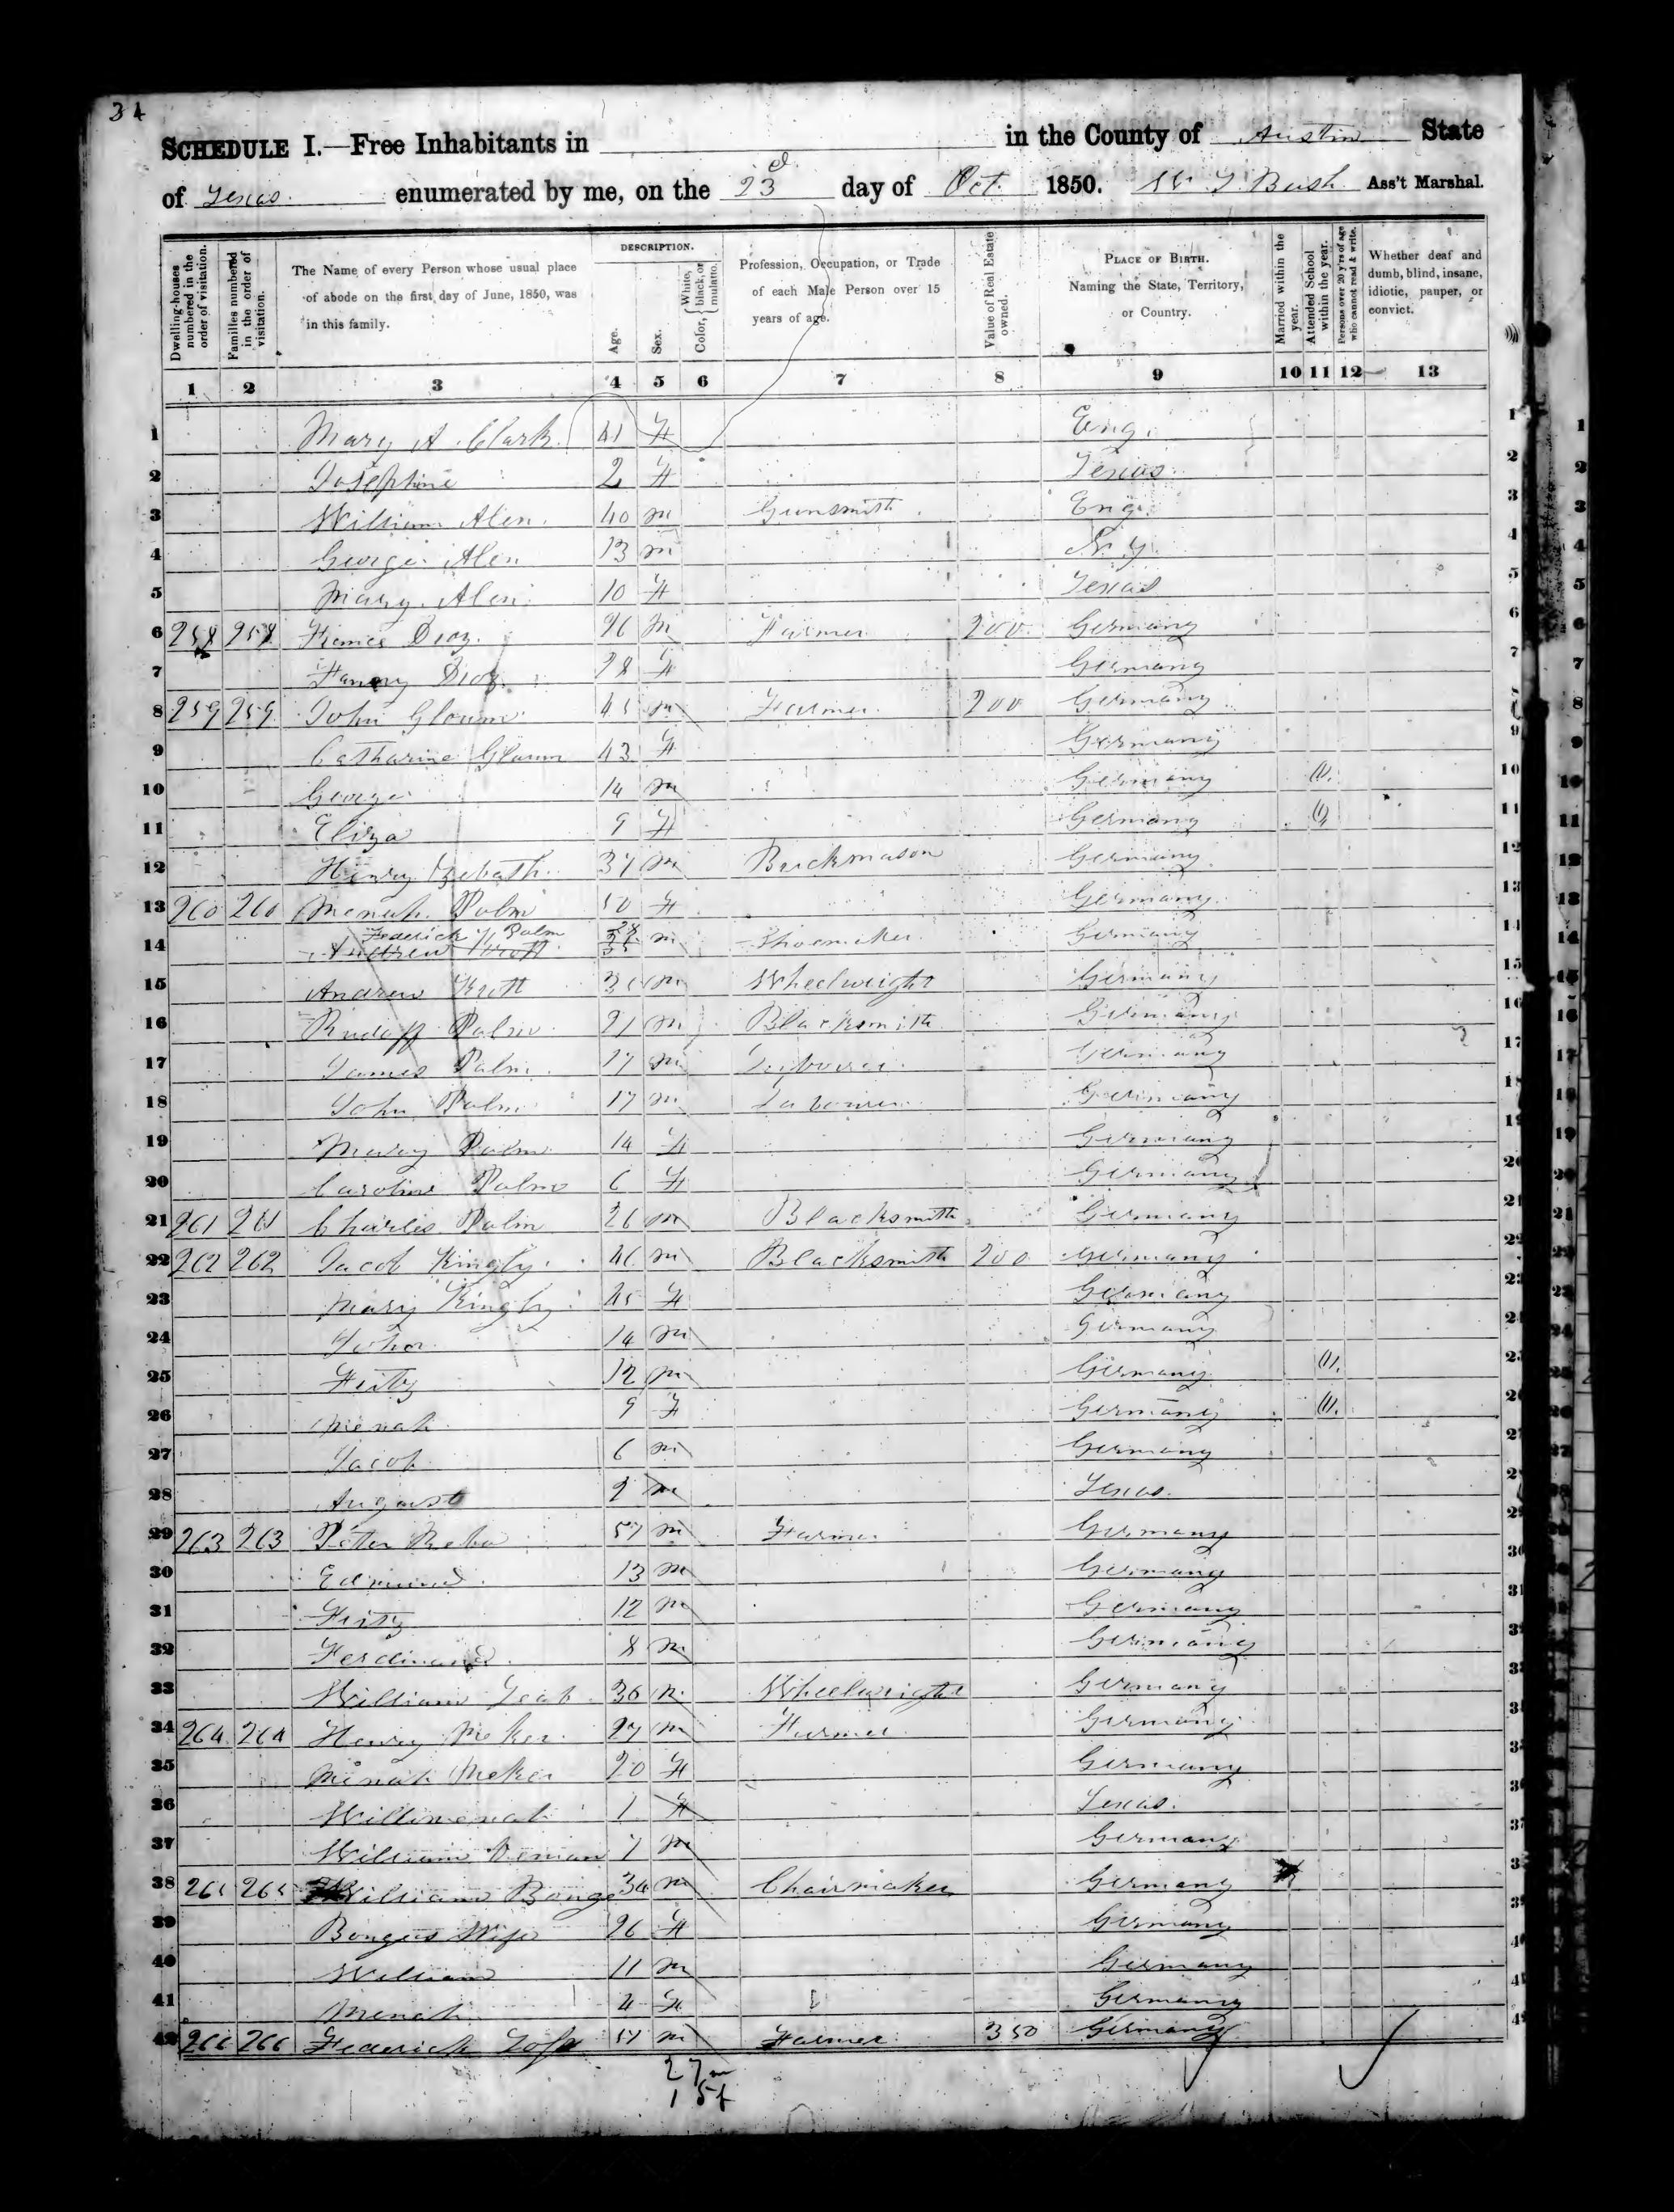 34
SCHEDULE I.—Free Inhabitants in in the County of Austin State
of Texas. enumerated by me, on the 23d day of Oct. 1850. Bush Ass't Marshal.
Dwelling-houses numbered in the order of visitation.
Families numbered in the order of visitation.
The Name of every Person whose usual place of abode on the first day of June, 1850, was in this family.
DESCRIPTION.
Age.
Sex.
Color, { White, black, or mulatto.
Profession, Occupation, or Trade of each Male Person over 15 years of age.
Value of Real Estate owned.
PLACE OF BIRTH. Naming the State, Territory, or Country.
Married within the year.
Attended School within the year.
Persons over 20 y'rs of age who cannot read & write.
Whether deaf and dumb, blind, insane, idiotic, pauper, or convict.
1 2 3 4 5 6 7 8 9 10 11 12 13
1 Mary A. Clark 41 F Eng. 1
2 Josephine 2 F Texas 2
3 William Alen. 40 m Gunsmith Eng. 3
4 George Alen 13 m N. Y. 4
5 Mary Alen 10 F Texas 5
6 258 258 26 m Farmer 200 Germany 6
7 Fanny 28 F Germany 7
8 259 259 John Glaum 45 m Farmer 200 Germany 8
9 Catharine Glaum 43 F Germany 9
10 George 14 m Germany 1. 10
11 Eliza 9 F Germany 1, 11
12 Henry 37 m Brickmason Germany 12
13 260 260 Menah Palm 50 F Germany 13
14 Federick Palm m Shoemaker Germany 14
15 Andrew m Wheelwright Germany 15
16 Rudoff Palm 21 m Blacksmith Germany 16
17 James Palm 17 m Labourer Germany 17
18 John Palm 17 m Labourer Germany 18
19 Mary Palm 14 F Germany 19
20 Caroline Palm 6 F Germany 20
21 261 261 Charles Palm 26 m Blacksmith Germany 21
22 262 262 Jacob Kingly 46 m Blacksmith 200 Germany 22
23 Mary Kingly 45 F Germany 23
24 John 14 m Germany 24
25 Fritz 12 m Germany 1. 25
26 Menah 9 F Germany 1. 26
27 Jacob 6 m Germany 27
28 August 2 m Texas. 28
29 263 263 Peter 57 m Farmer Germany 29
30 Edmund 13 m Germany 30
31 Fritz 12 m Germany 31
32 Ferdinand 8 m Germany 32
33 William 36 m Wheelwright Germany 33
34 264 264 Henry Meker 27 m Farmer Germany 34
35 Menah Meker 20 F Germany 35
36 Willimenah 1 F Texas. 36
37 William 7 m Germany 37
38 265 265 William Bonge 34 m Chairmaker Germany 38
39 Bonges Wife 26 F Germany 39
40 William 11 m Germany 40
41 Menah 4 F Germany 41
42 266 266 Federick 57 m Farmer 350 Germany 42
27 m
15 f